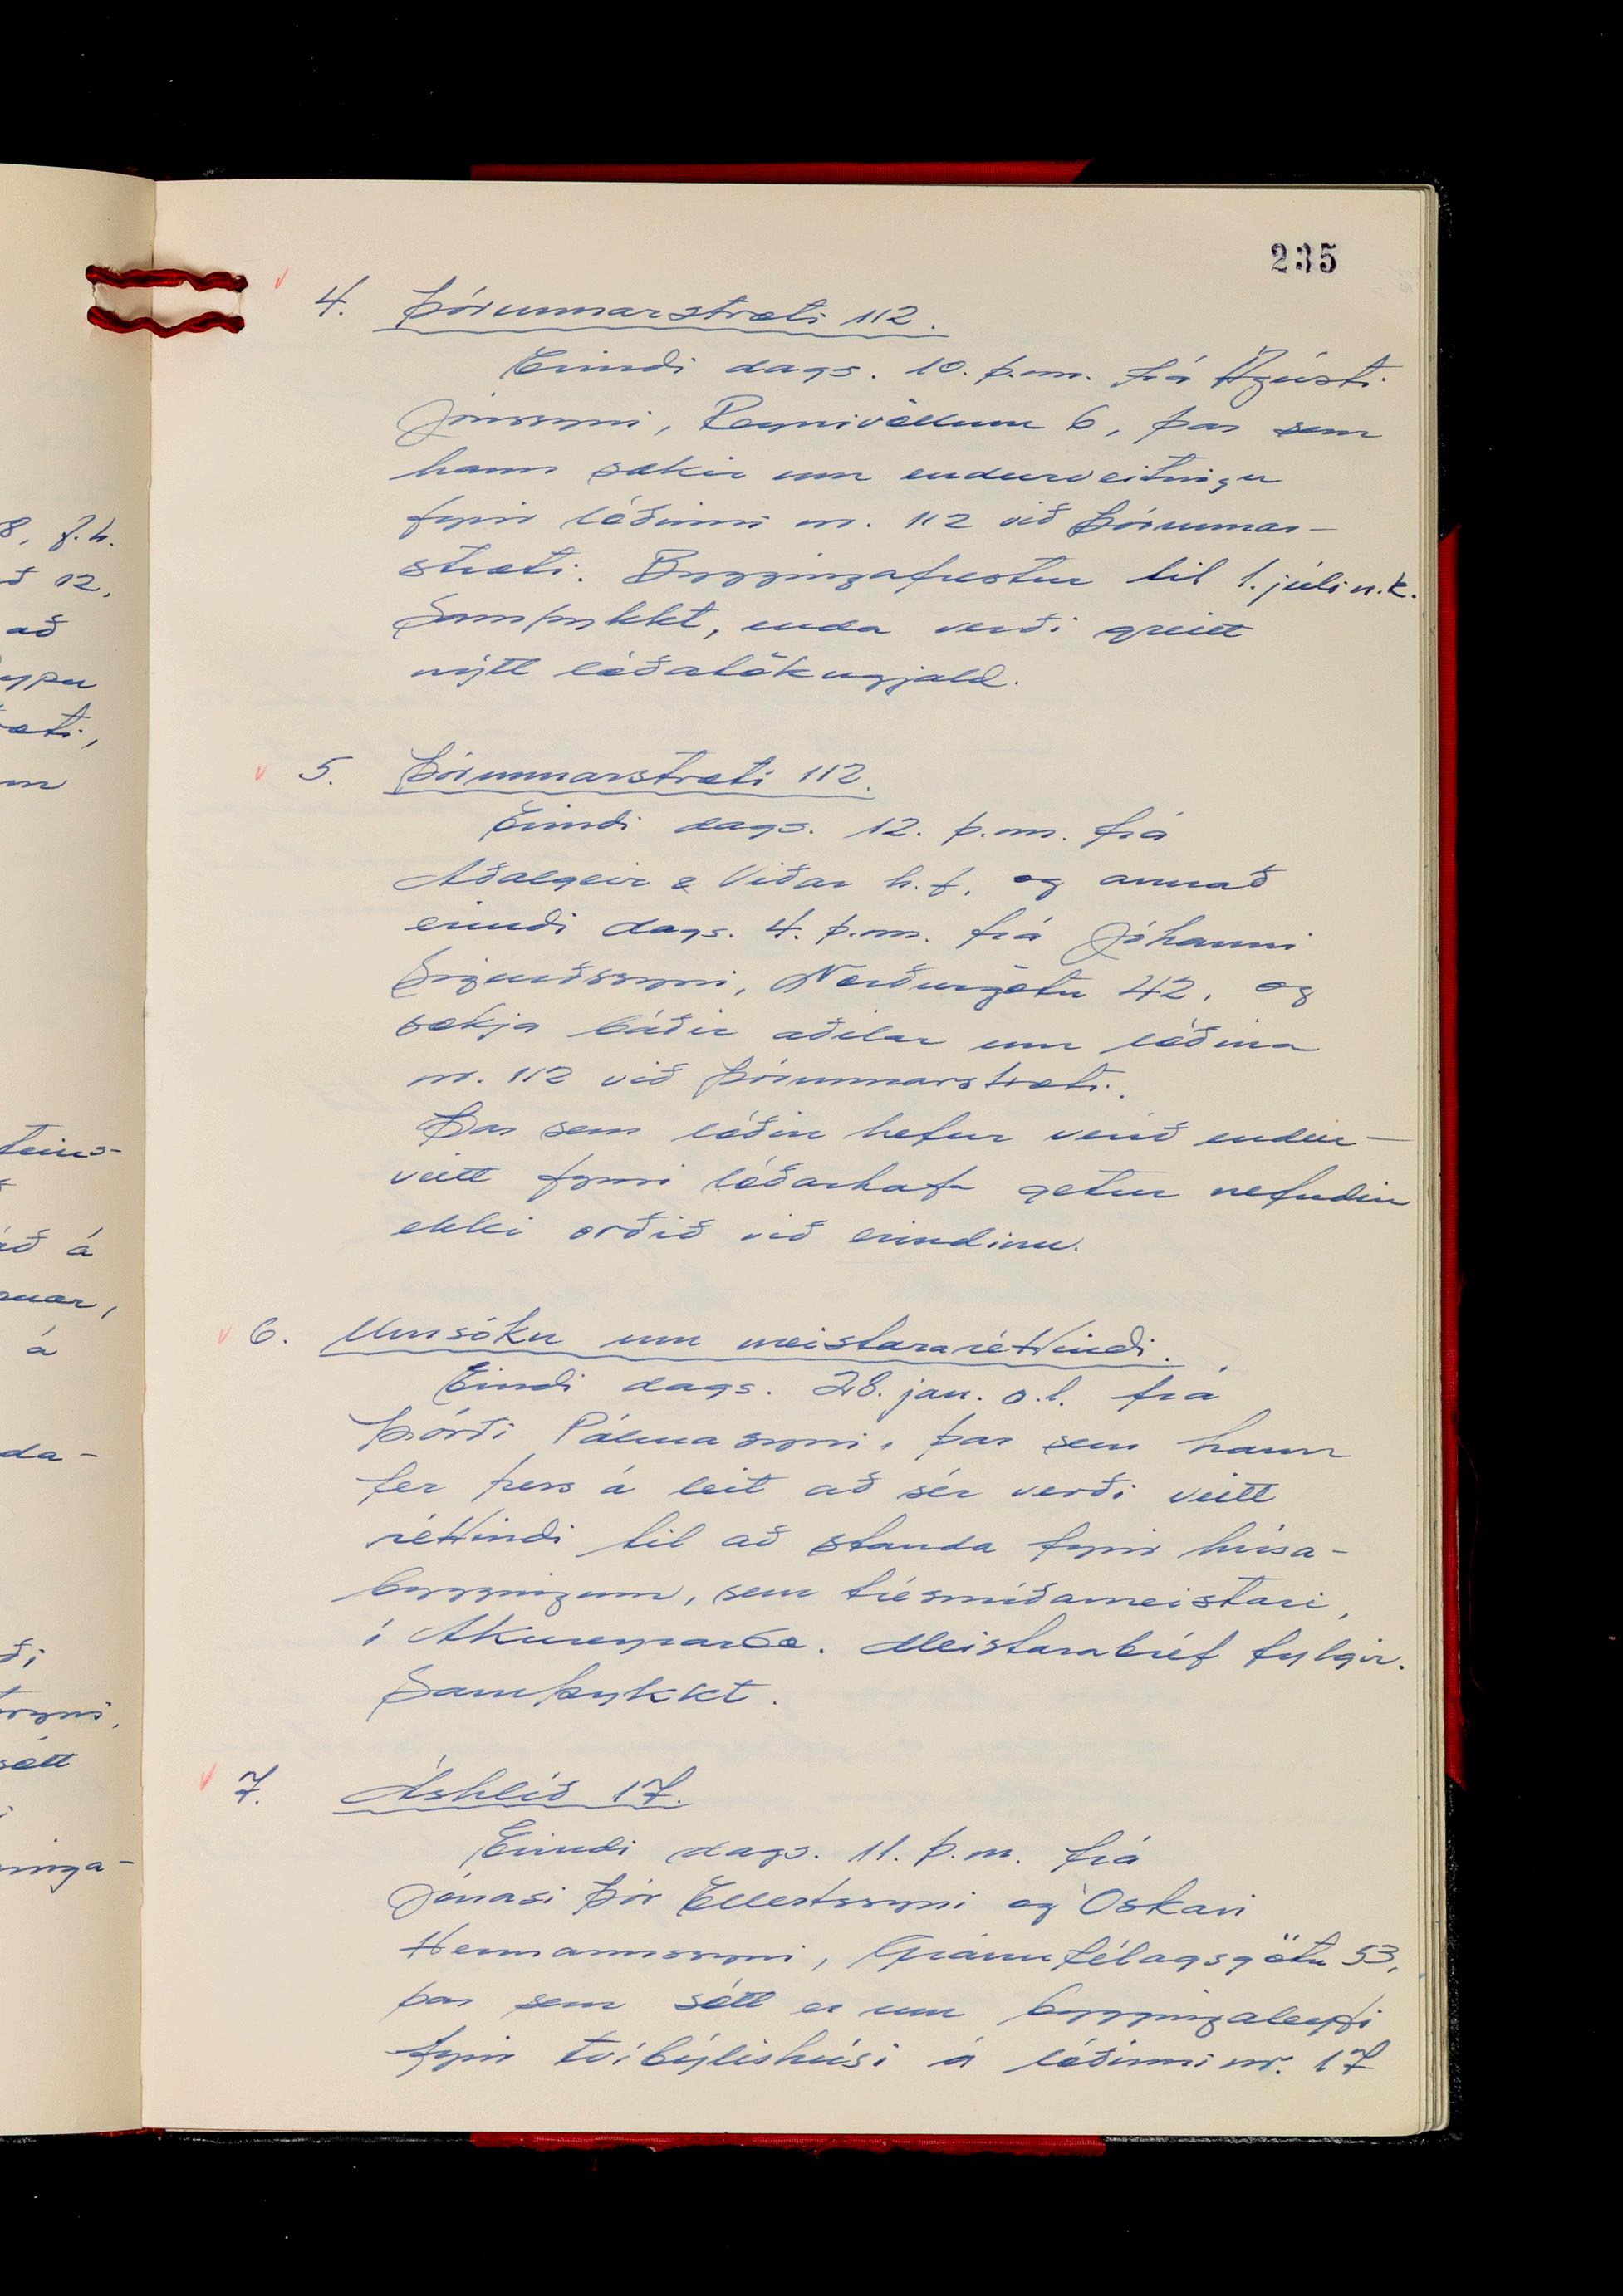 235
4. Þórunnarstræti 112.
Erindi dags. 10. þ.m. frá Ágústi
Jónssyni, Reynivöllum 6, þar sem
hann sækir um endurveitingu
fyrir lóðinni nr. 112 við Þórunnar-
stræti. Byggingafrestur til 1. júlí n.k.
Samþykkt, enda verði greitt
nýtt lóðatökugjald.
5. Þórunnarstræti 112.
Erindi dags. 12. þ.m. frá
Aðalgeir & Viðar h.f. og annað
erindi dags. 4. þ.m. frá Jóhanni
Sigurðssyni, Norðurgötu 42, og
sækja báðir aðilar um lóðina
nr. 112 við Þórunnarstræti.
Þar sem lóðin hefur verið endur-
veitt fyrri lóðarhafa getur nefndin
ekki orðið við erindinu.
6. Umsókn um meistararéttindi.
Erindi dags. 28. jan. s.l. frá
Þórði Pálmasyni, þar sem hann
fer þess á leit að sér verði veitt
réttindi til að standa fyrir húsa-
byggingum, sem trésmíðameistari,
í Akureyrarbæ. Meistarabréf fylgir.
Samþykkt.
7. Áshlíð 17.
Erindi dags. 11. þ.m. frá
Jónasi Þór Ellertssyni og Óskari
Hermannssyni, Gránufélagsgötu 53,
þar sem sótt er um byggingaleyfi
fyrir tvíbýlishúsi á lóðinni nr. 17
8, f.h.
ð 12,
að
æti,
teins-
að á
á
da-
ði
sótt
inga-